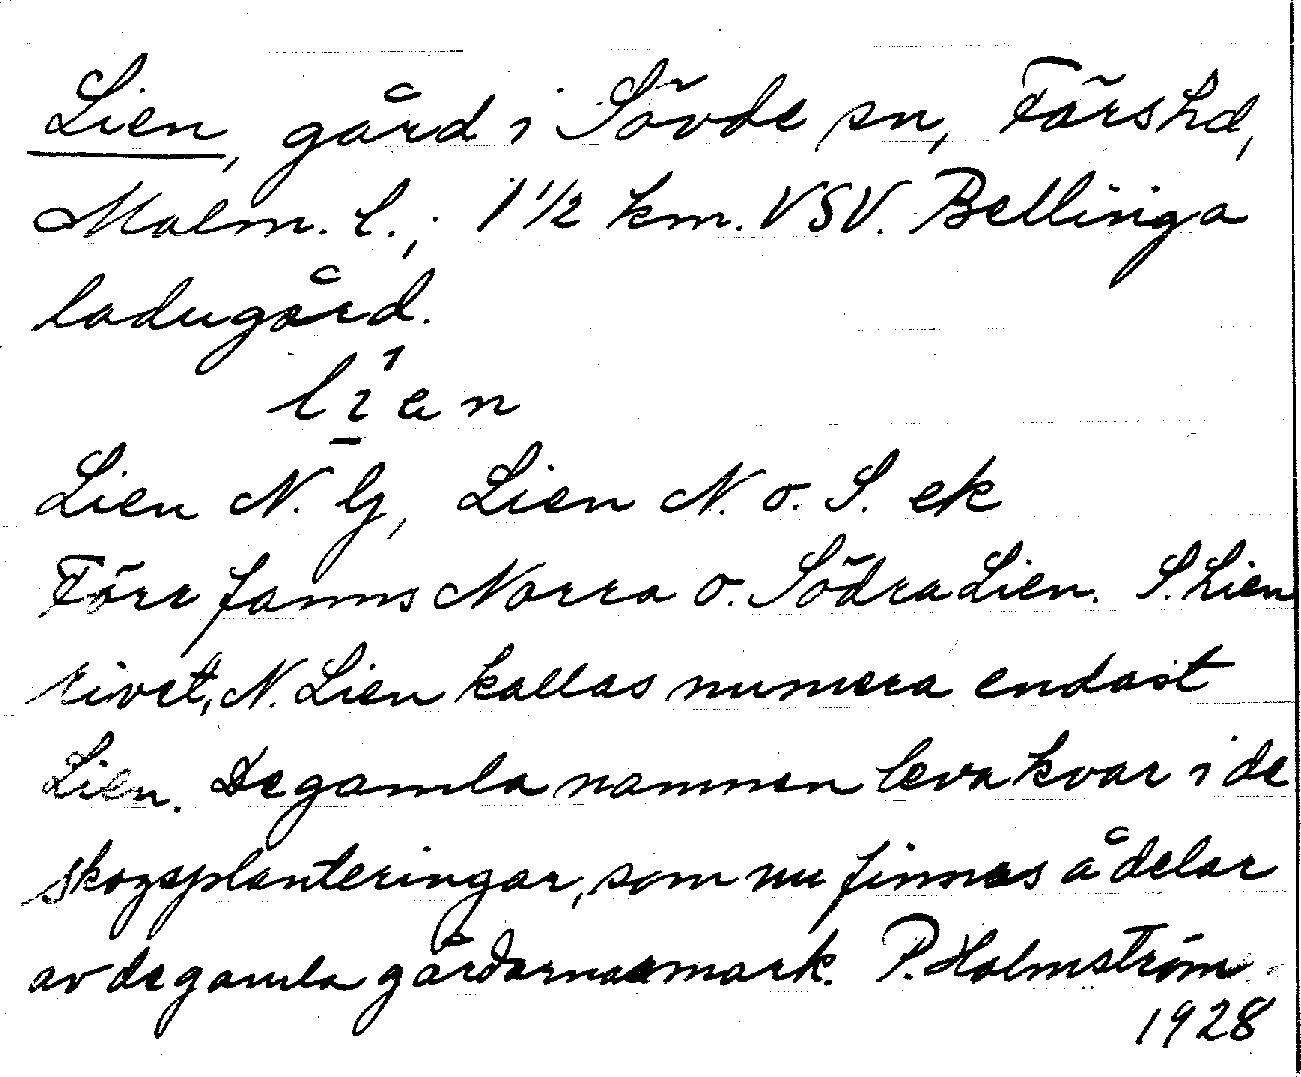 Lien, gård i Sövde sn, Färs hd,
Malm. l.; 1 1/2 km. VSV. Bellinga
ladugård.
lien
Lien N. Gj, Lien N. o. S. ek
Förr fanns Norra o. Södra Lien. S. Lien
rivet, N. Lien kallas numera endast
Lien. De gamla namnen leva kvar i de
skogsplanteringar, som nu finnas å delar
av de gamla gårdarnas mark. P. Holmström
1928